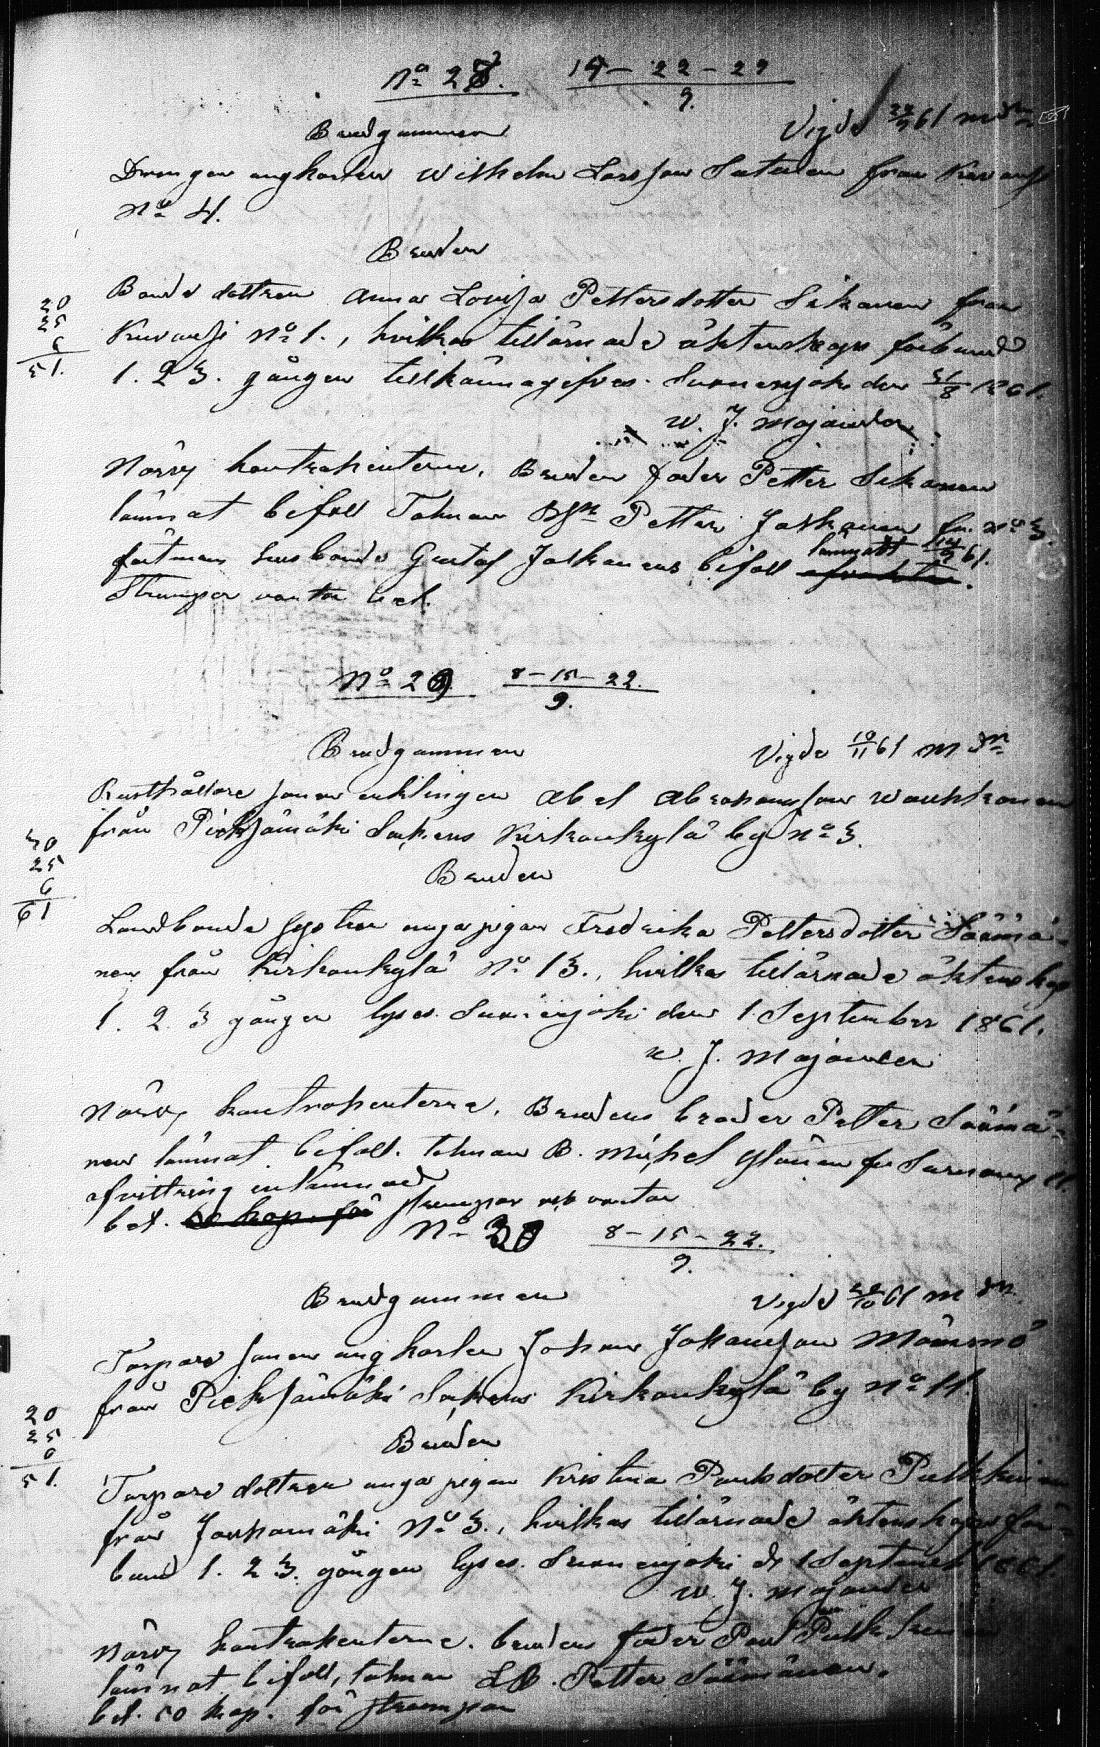 No 28. 15 - 22 - 29
9.
Brudgummen Vigde 61
Drengen ungkarlen Wilhelm Larsson från
No 4.
Bruden
20
25
6
51.
Bonde dottren Anna Lovisa Pettersdotter Sikanen från
No 1., hvilkas tillärnade äktenskaps förbund
1. 2 3. gången tillkännagifves. Suonenjoki den 31/8 1861.
W. J. Majander
Närv. kontrahenterne. Bruden fader Petter Sikanen
lämnat bifall Talman Petter Jalkanen fr. No 3.
lämnatt 61.
Gustaf Jalkanens bifall
Strumpor vantar bet.
No 29 8 - 15 - 22.
9.
Brudgummen Vigde 10/11 61
Rusthållare sonen enklingen Abel Abrahamsson
från Pieksämäki Sockens Kirkonkylä by No 3.
30
25
6
61
Bruden
Landbonde dottren unga pigan Fredrika Pettersdotter Säämä-
nen från Kirkonkylä No 13., hvilkas tillärnade äktenskap
1. 2. 3 gången lyses. Suonenjoki den 1 September 1861.
W. J. Majander
Närv. kontrahenterne. Brudens broder Petter Säämä-
nen lämnat bifall. talman B. Mickel
afvittring inlämnad
bet. 50 kop. för strumpor och vantar
No 30 8 - 15 - 22.
9.
Brudgummen Vigde 61
Torpare sonen ungkarlen Johan Johansson
från Pieksämäki Sockens Kirkonkylä by No 11
20
25
6
51.
Bruden
Torpare dottren unga pigan Kristina Paulsdotter Pulkkinen
från No 3., hvilkas tillärnade äktenskaps för-
bund 1. 2 3. gången lyses. Suonenjoki d. 1 September 1861.
W. J. Majander
Närv. kontrahenterne. brudens fader Paul Pulkkinen
lämnat bifall, talman Petter Säämänen.
bet. 50 kop. för strumpor